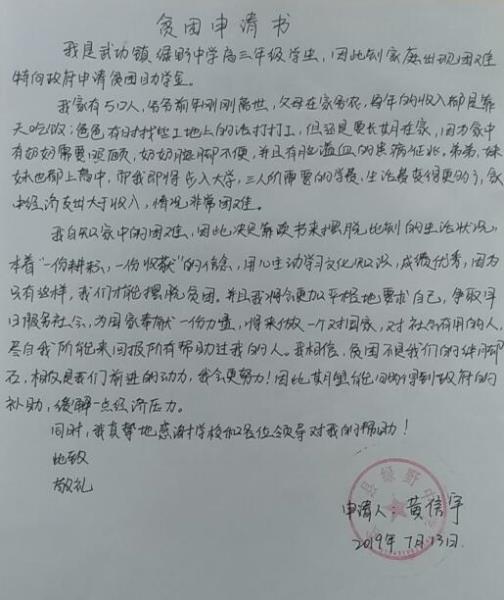 贫困申请书
我是武功镇绿野中学高三年级学生，因此刻家庭出现困难
特向政府申请贫困助学金。
我家有5口人，爷爷前年刚刚离世，父母在家务农，每年的收入都是靠
天吃饭；爸爸有时找些工地上的活打打工，但还是要长期在家，因为家中
有奶奶需要照顾，奶奶腿脚不便，并且有脑溢血的患病征兆。弟弟、妹
妹也都上高中，而我即将步入大学，三人所需要的学费、生活费变得更多了，家
中经济支出大于收入，情况非常困难。
我自知家中的困难，因此决定靠读书来摆脱此刻的生活状况，
本着"一份耕耘，一份收获"的信念，用心主动学习文化知识，成绩优秀，因为
只有这样，我们才能摆脱贫困。并且我将会更加严格地要求自己，争取早
日服务社会，为国家奉献一份力量，将来做一个对国家，对社会有用的人，
尽自我所能来回报所有帮助过我的人。我相信，贫困不是我们的绊脚
石，相反是我们前进的动力，我会更努力！因此期望能同时得到政府的
补助，缓解一点经济压力。
同时，我真挚地感谢学校和各位领导对我的帮助！
此致
敬礼
申请人：黄信宇
2019年7月13日